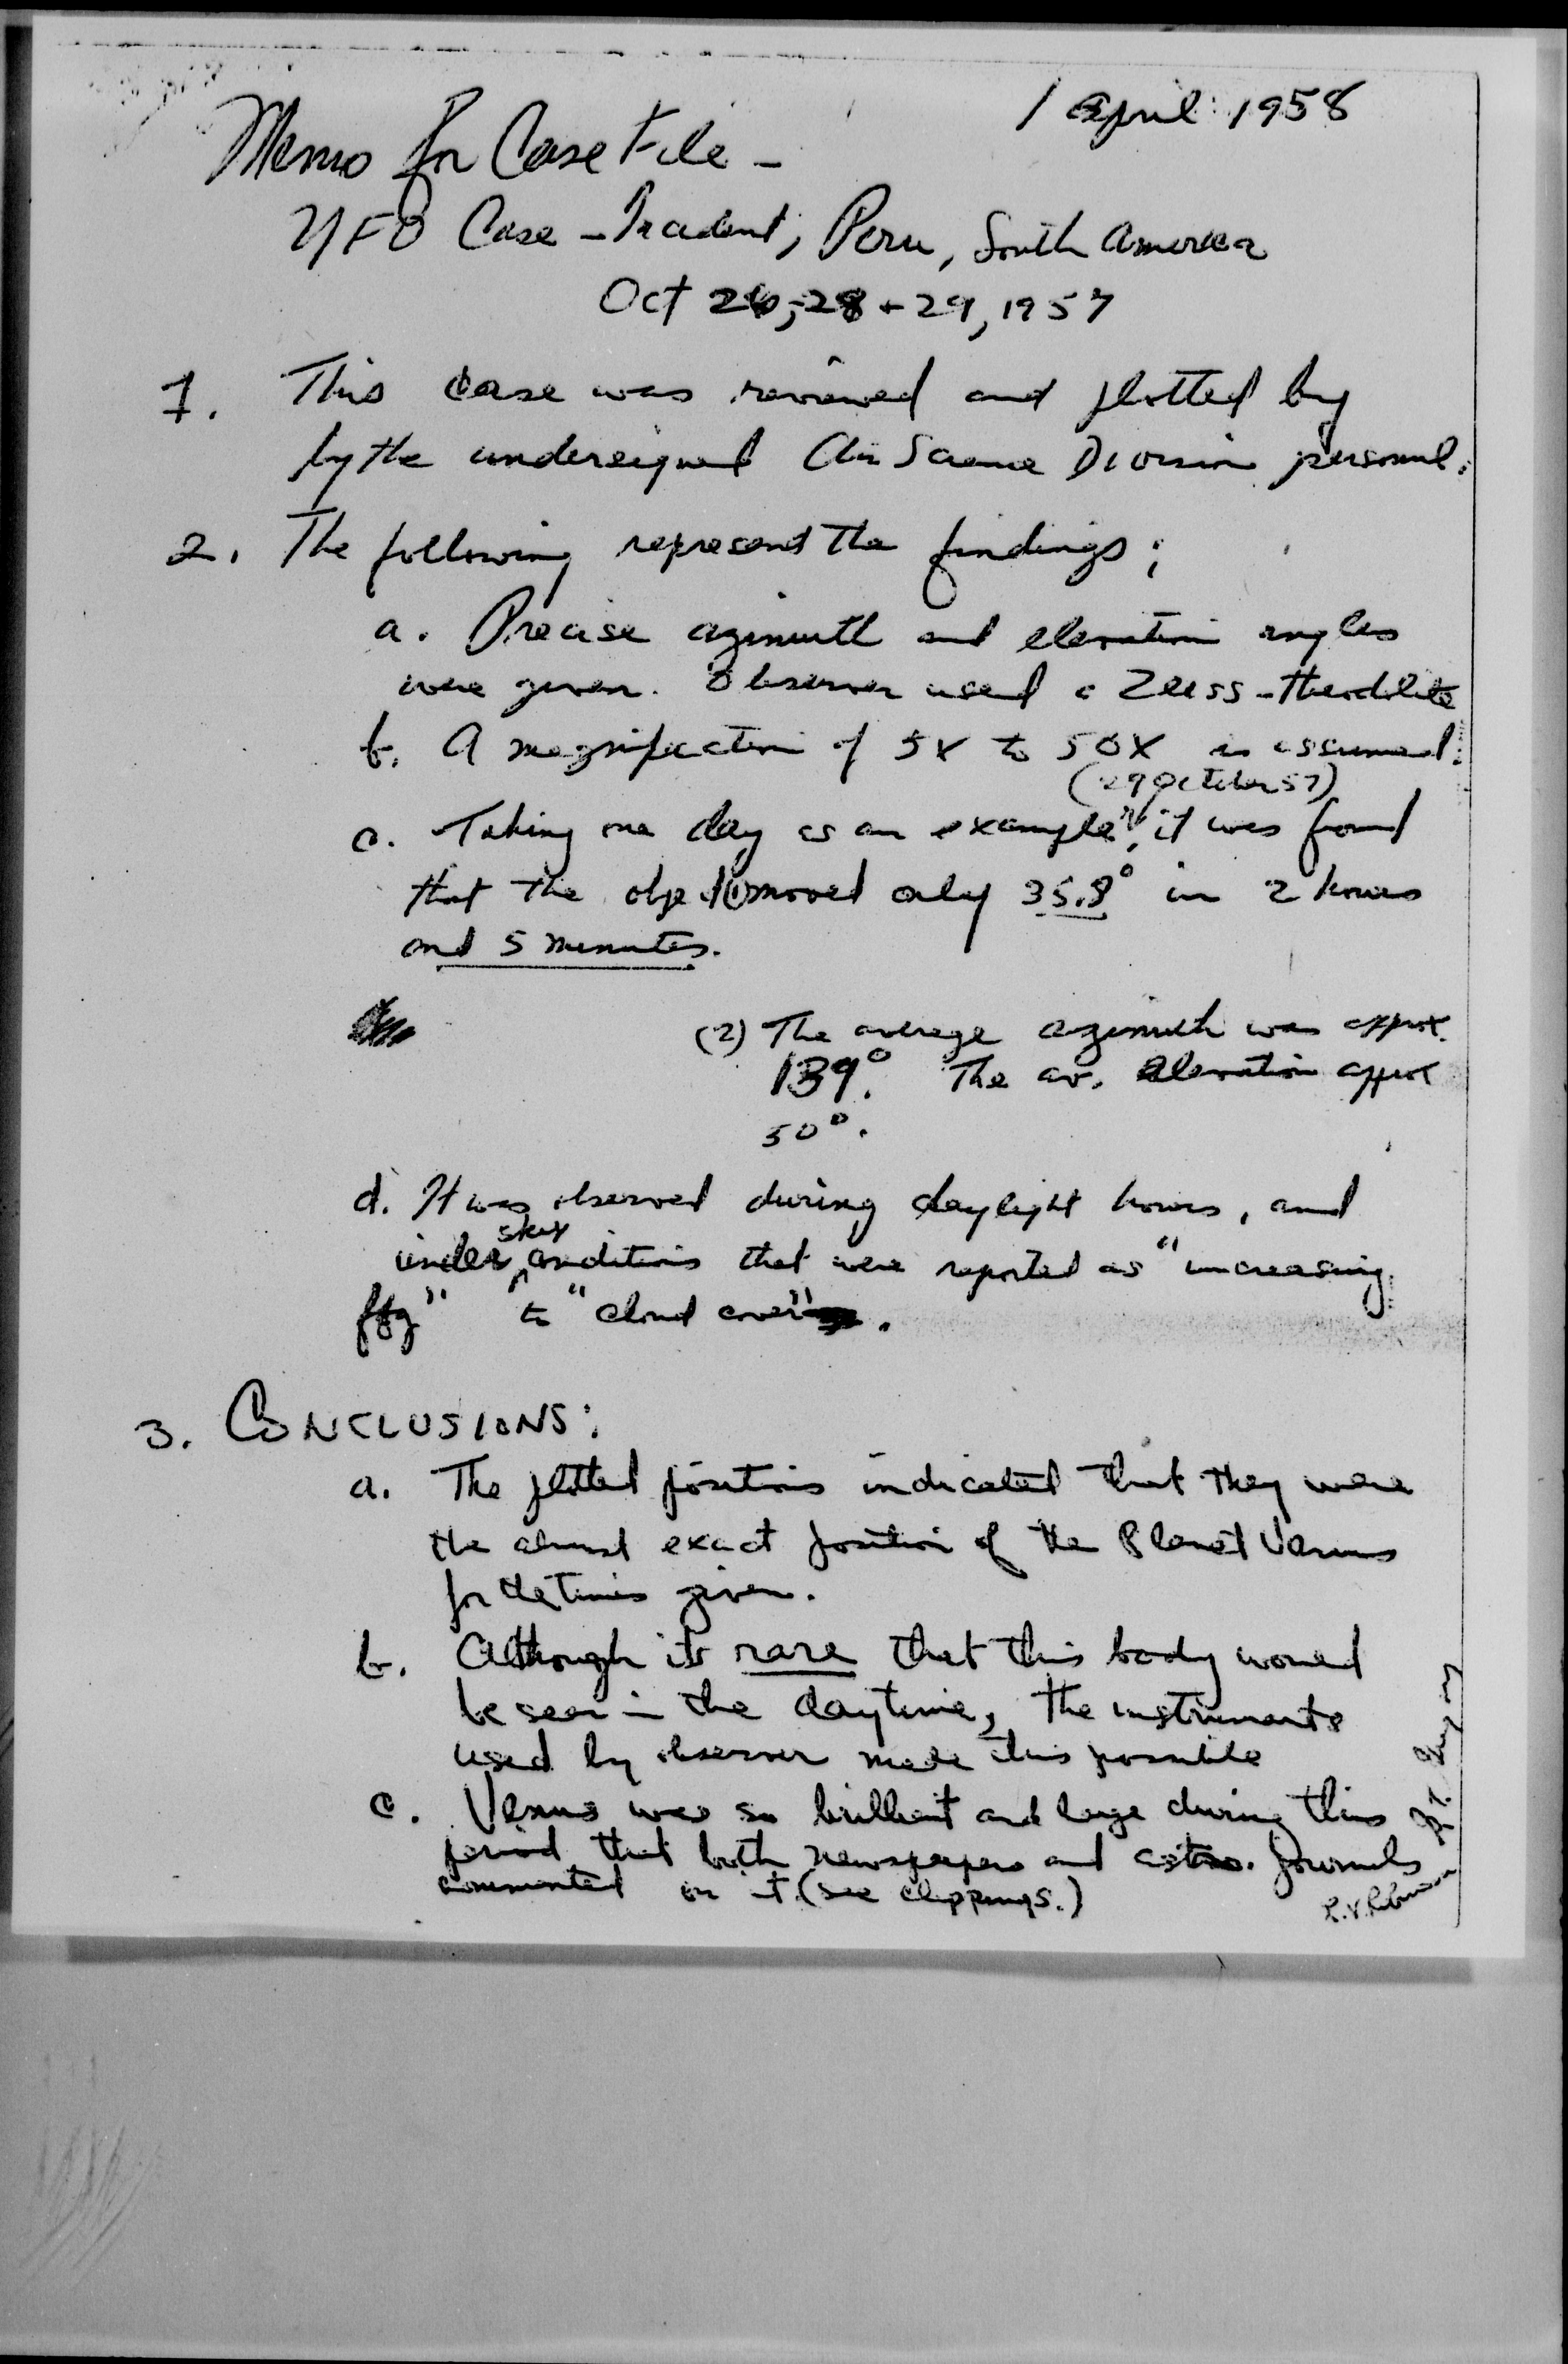 1 April 1958
Memo for Case File -
UFO Case - Incident, Peru, South America
Oct 26, 28 + 29, 1957
1. This case was reviewed and plotted by
by the undersigned Air Science Division personnel.
2. The following represent the findings;
a. Precise azimuth and elevation angles
were given. Observer used a Zeiss-theodolite
b. A magnification of 5X to 50X is assumed.
(29 October 57)
c. Taking one day as an example, it was found
that the object (1) moved only 35.8° in 2 hours
and 5 minutes.
(2) The average azimuth was approx.
139°. The av. elevation approx
50°.
d. It was observed during daylight hours, and
under sky conditions that were reported as "increasing
fog" to "cloud cover".
3. CONCLUSIONS:
a. The plotted positions indicated that they were
the almost exact position of the Planet Venus
for the times given.
b. Although its rare that this body would
be seen in the daytime, the instruments
used by observer made this possible
c. Venus was so brilliant and large during this
period that both newspapers and astro. journals
commented on it (see clippings.)
R.V. Robinson